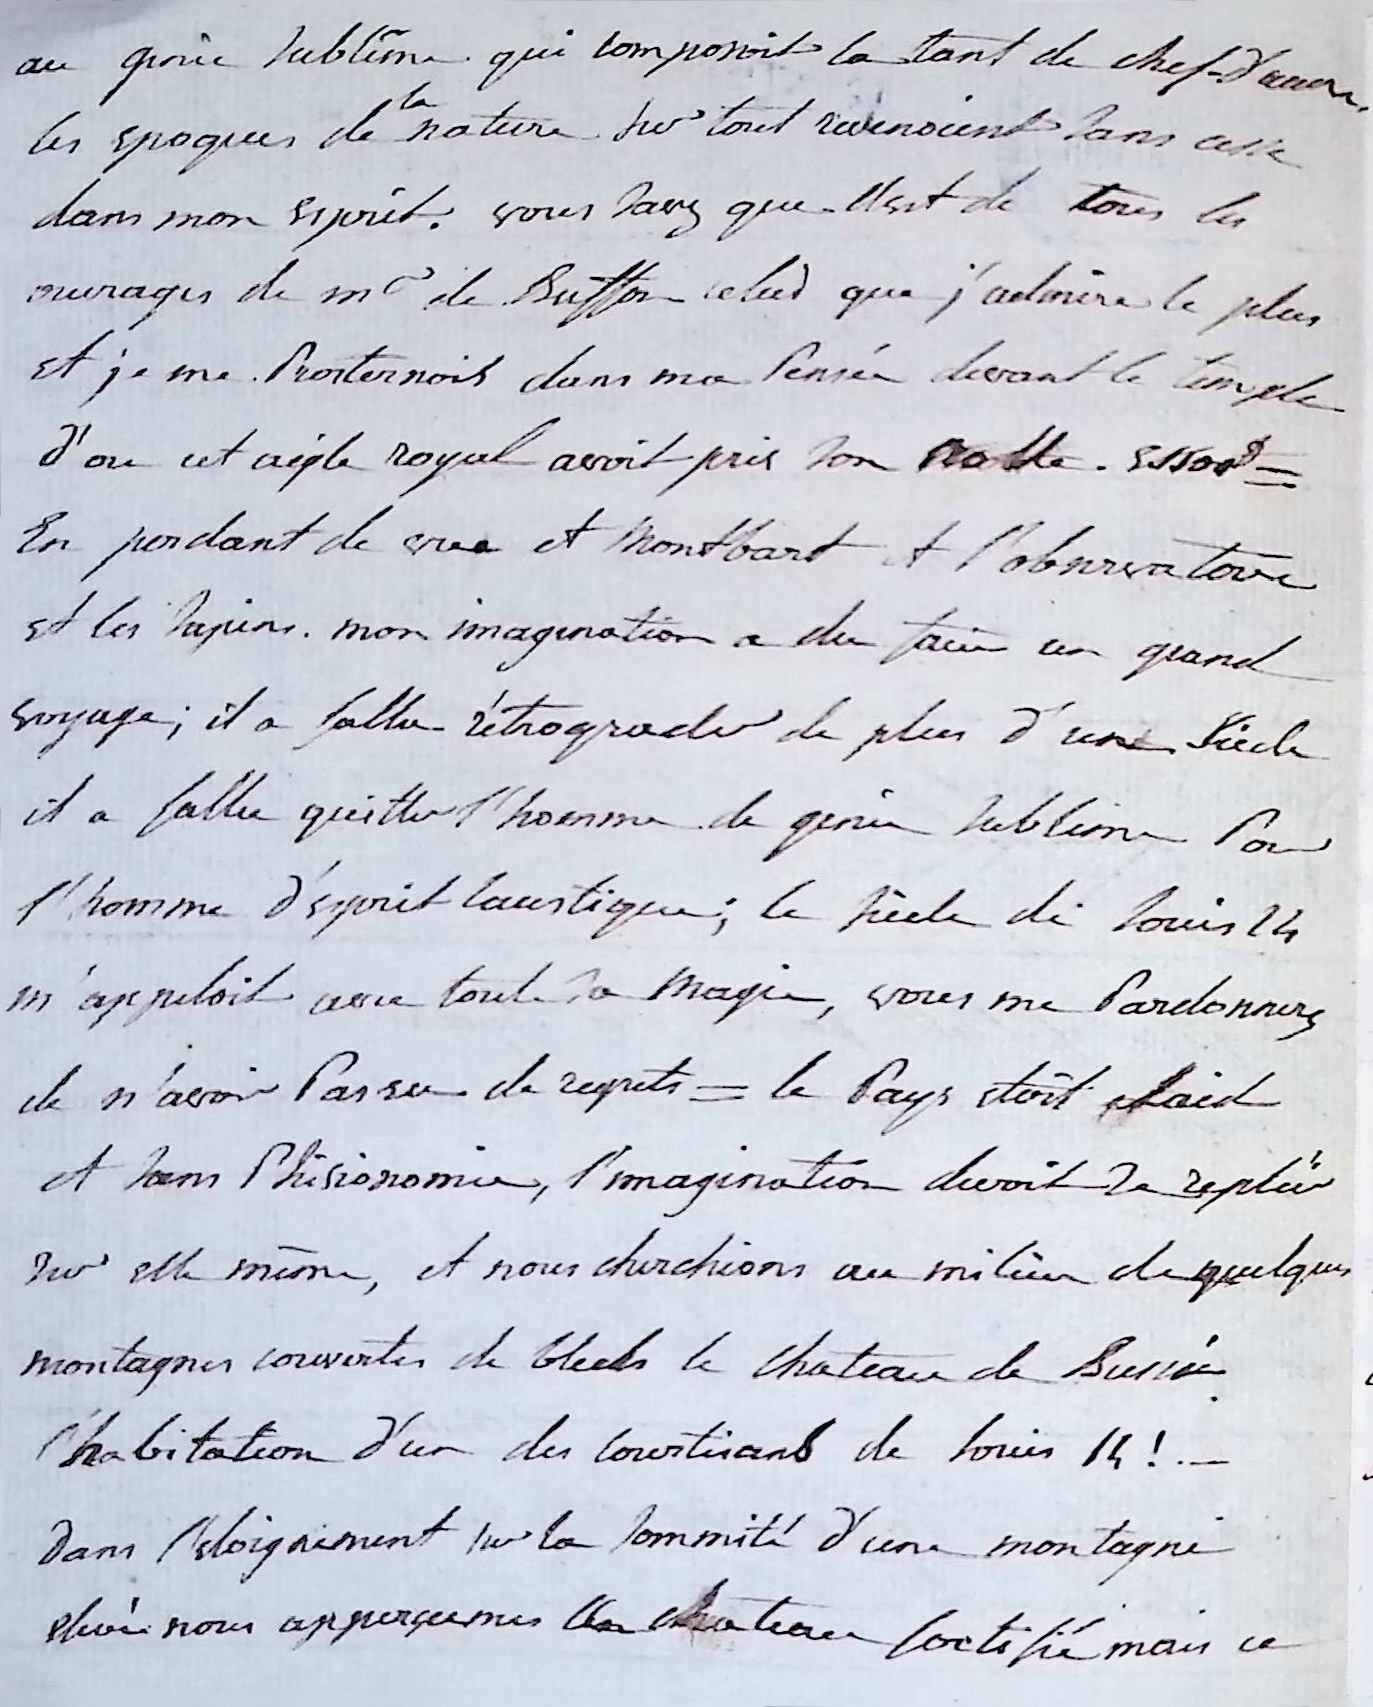 au genie sublime qui composoit la tant de chef-d'œuvre,
les epoques de la nature sur tout revenoient sans cesse
dans mon esprit. vous savez que c'est de tous les
ouvrages de mr de Buffon celui que j'admire le plus
et je me Prosternois dans ma Pensée devant le temple
d'ou cet aigle royal avoit pris son noble essor =
En perdant de vue et Montbart et l'observatoire
et les sapins. mon imagination a du faire un grand
voyage; il a fallu rétrograder de plus d'une siècle
il a fallu quitter l'homme de genie sublime Pour
l'homme d'ésprit caustique; le siècle de Louis 14
m'appeloit avec toute sa magie, vous me Pardonnerez
de n'avoir Pas eu de regrets = le Pays étoit laid
et sans Phisionomie, l'imagination devoit se replier
sur elle même, et nous cherchions au milieu de quelques
montagnes couvertes de bleds le chateau de Bussie
l'habitation d'un des courtisans de Louis 14! . —
Dans l'eloignement sur la sommité d'une montagne
elevée nous apperçumes un chateau fortifié mais ce